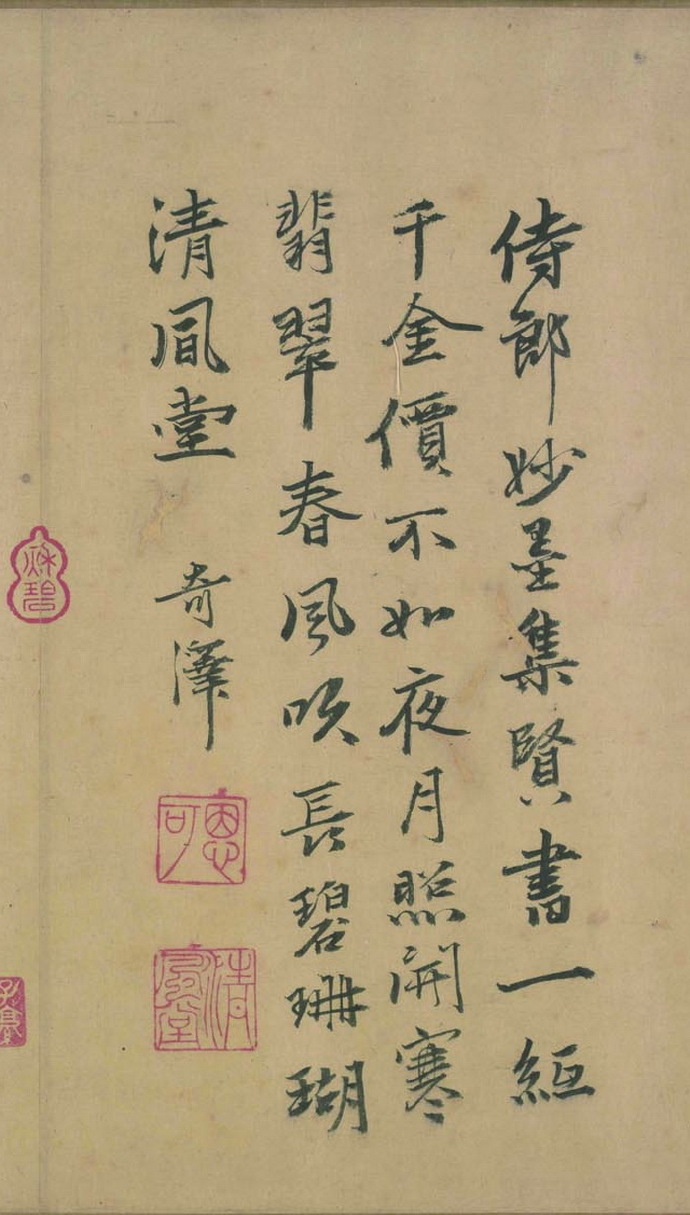 侍郎妙墨集賢書一經
千金價不如夜月照開寒
翡翠春風吹長碧珊瑚
清風堂　奇澤
恩可
清風堂